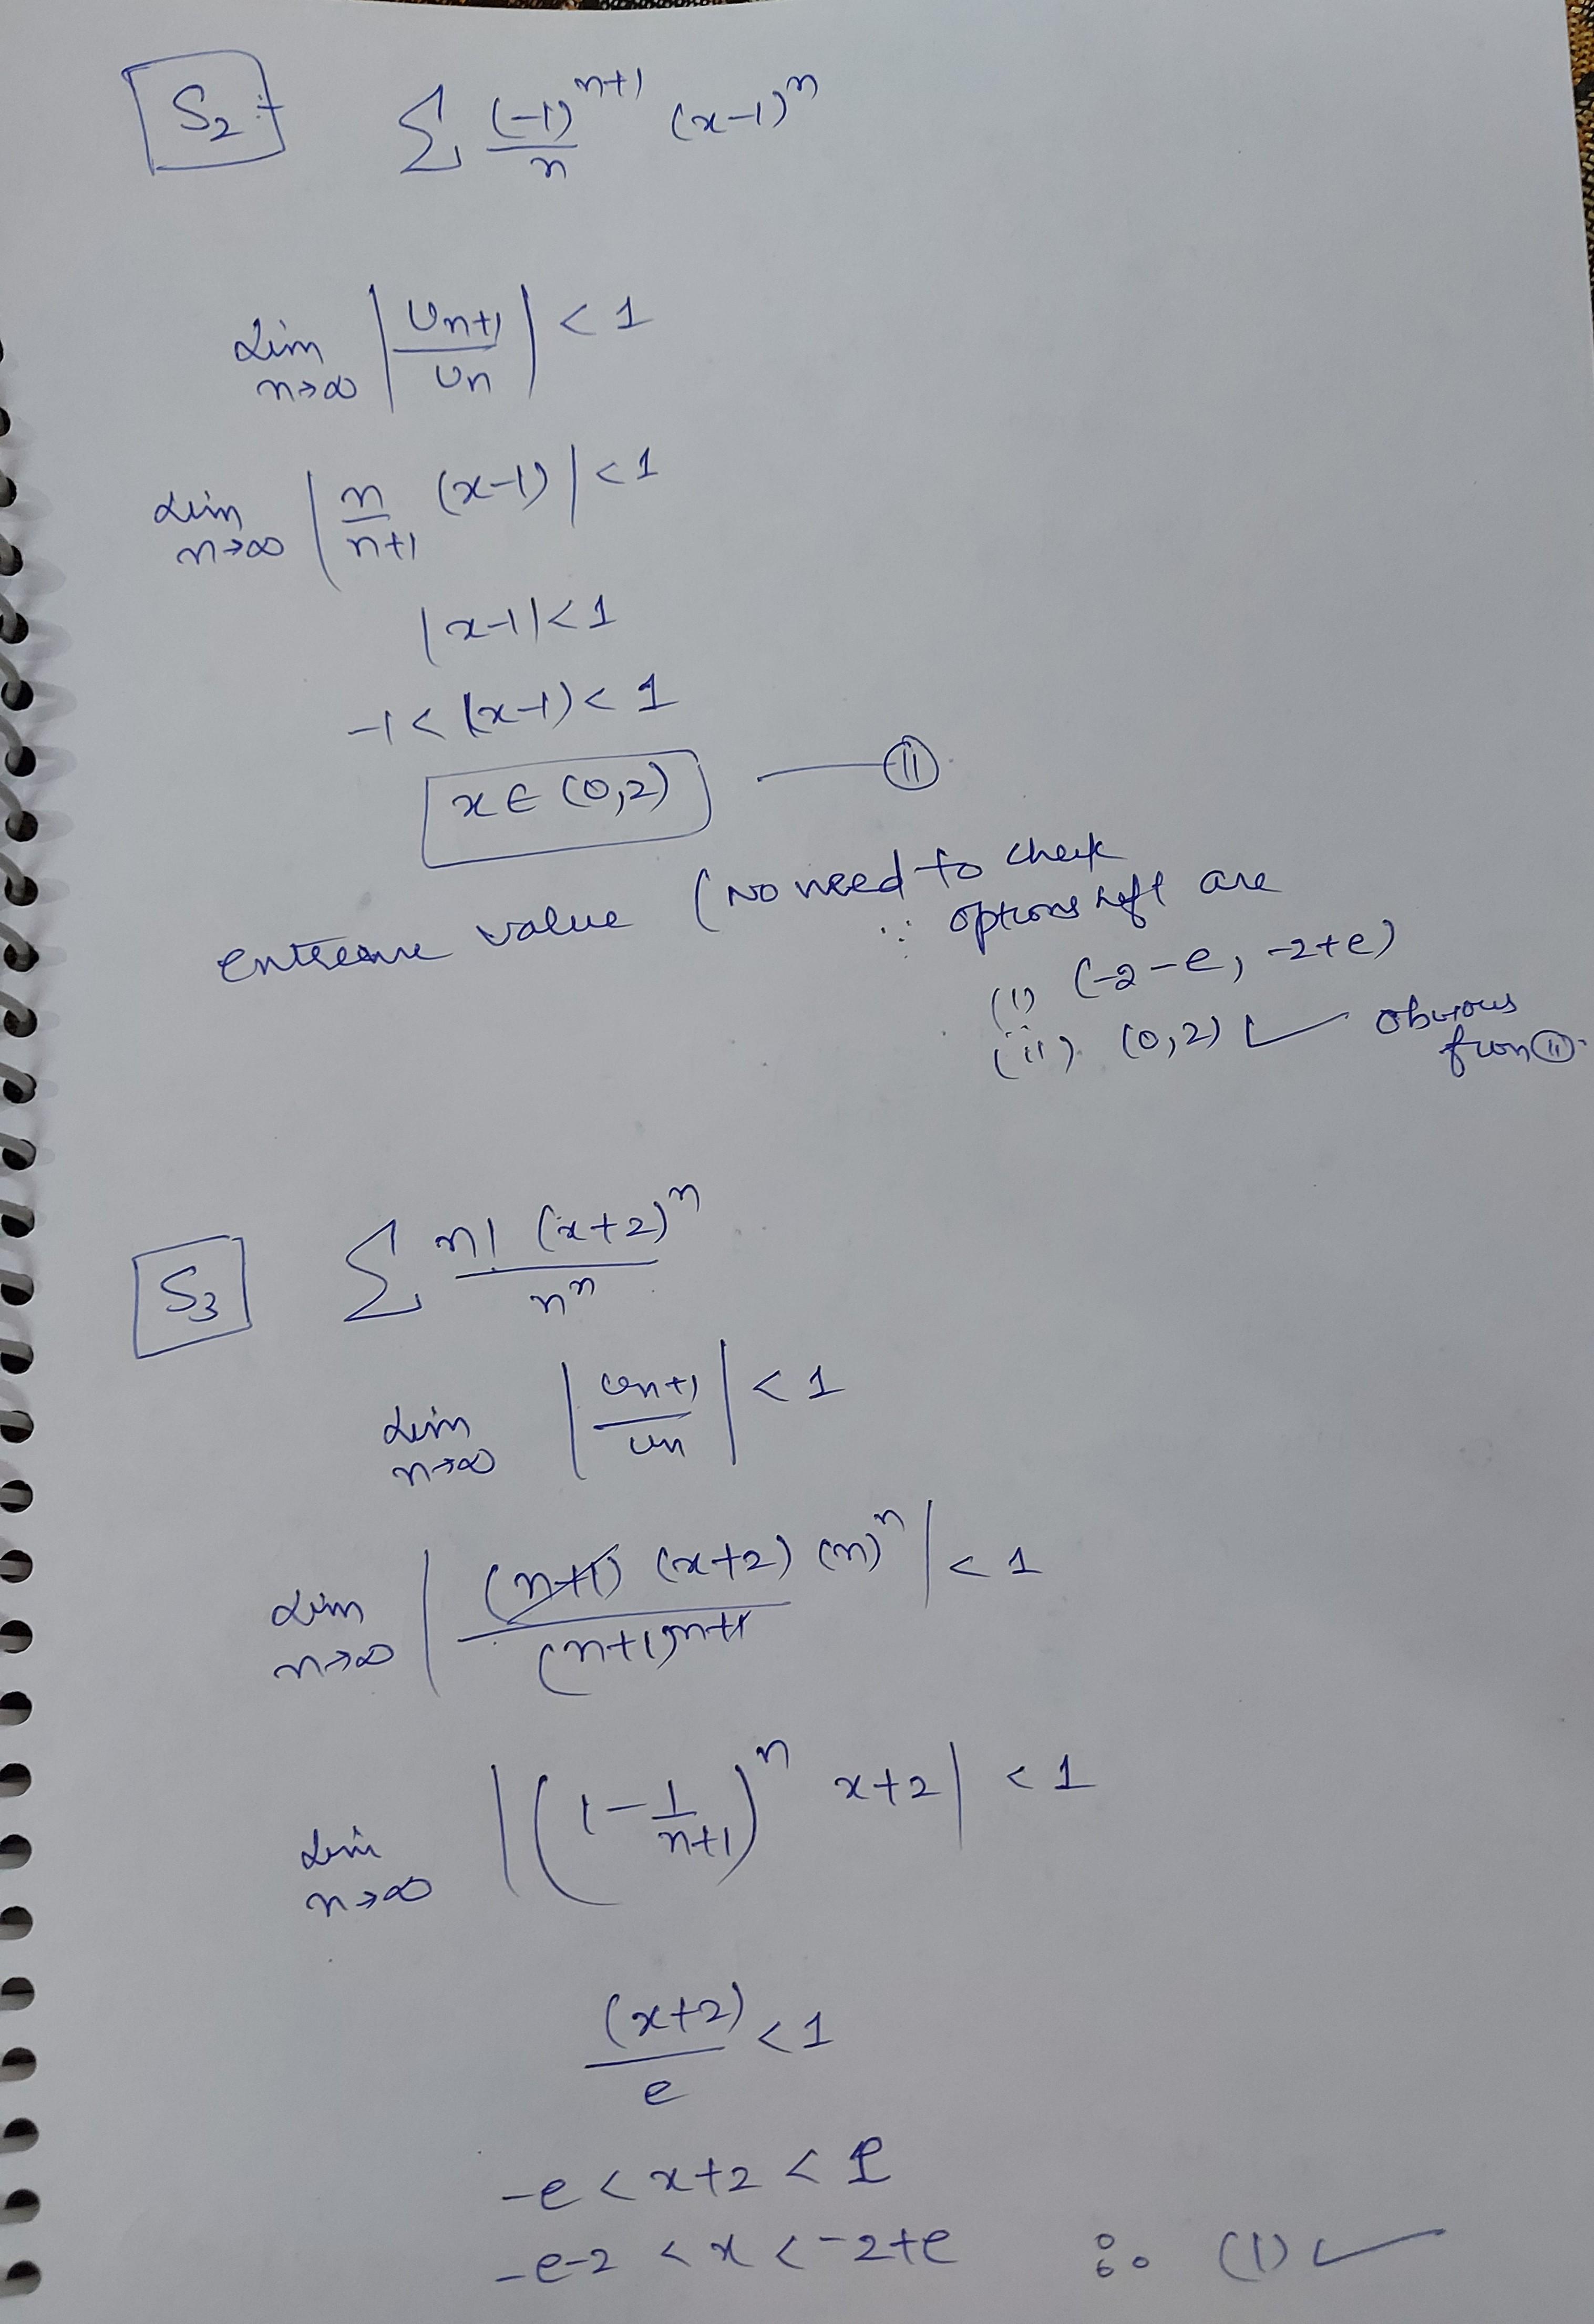 S₂ :- Σ (-1)ⁿ⁺¹/n (x-1)ⁿ
Lim n→∞ |Un+1/Un| < 1
Lim n→∞ |n/n+1 (x-1)| < 1
|x-1| < 1
-1 < (x-1) < 1
x ∈ (0,2) — (II)
value (No need to check
∵ options left are
(i) (-2-e, -2+e)
(ii) (0,2) ✓ obvious
from (II).
S₃ Σ n! (x+2)ⁿ / nⁿ
Lim n→∞ |Un+1/Un| < 1
Lim n→∞ |(n+1) (x+2) (n)ⁿ / (n+1)ⁿ⁺¹| < 1
Lim n→∞ |(1 - 1/n+1)ⁿ x+2| < 1
(x+2)/e < 1
-e < x+2 < e
-e-2 < x < -2+e ∴ (1) ✓